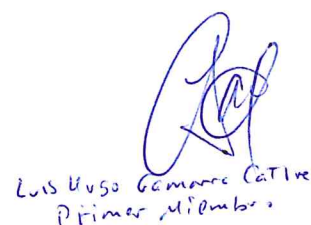 Luis Hugo Gamarra Catire
Primer Miembro